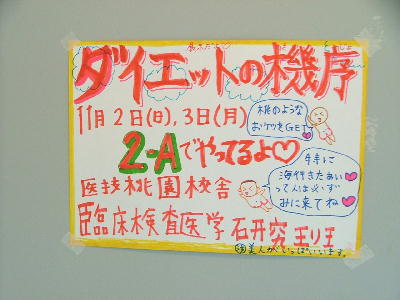 ダイエットの機序
11月2日(日),3日(月)
桃のような
おケツをGET!
2-Aでやってるよ♡
医技桃園校舎
特に
海行きたぁい
って人は必ず
みに来てね
臨床検査医学研究班
美人がいっぱいいます。